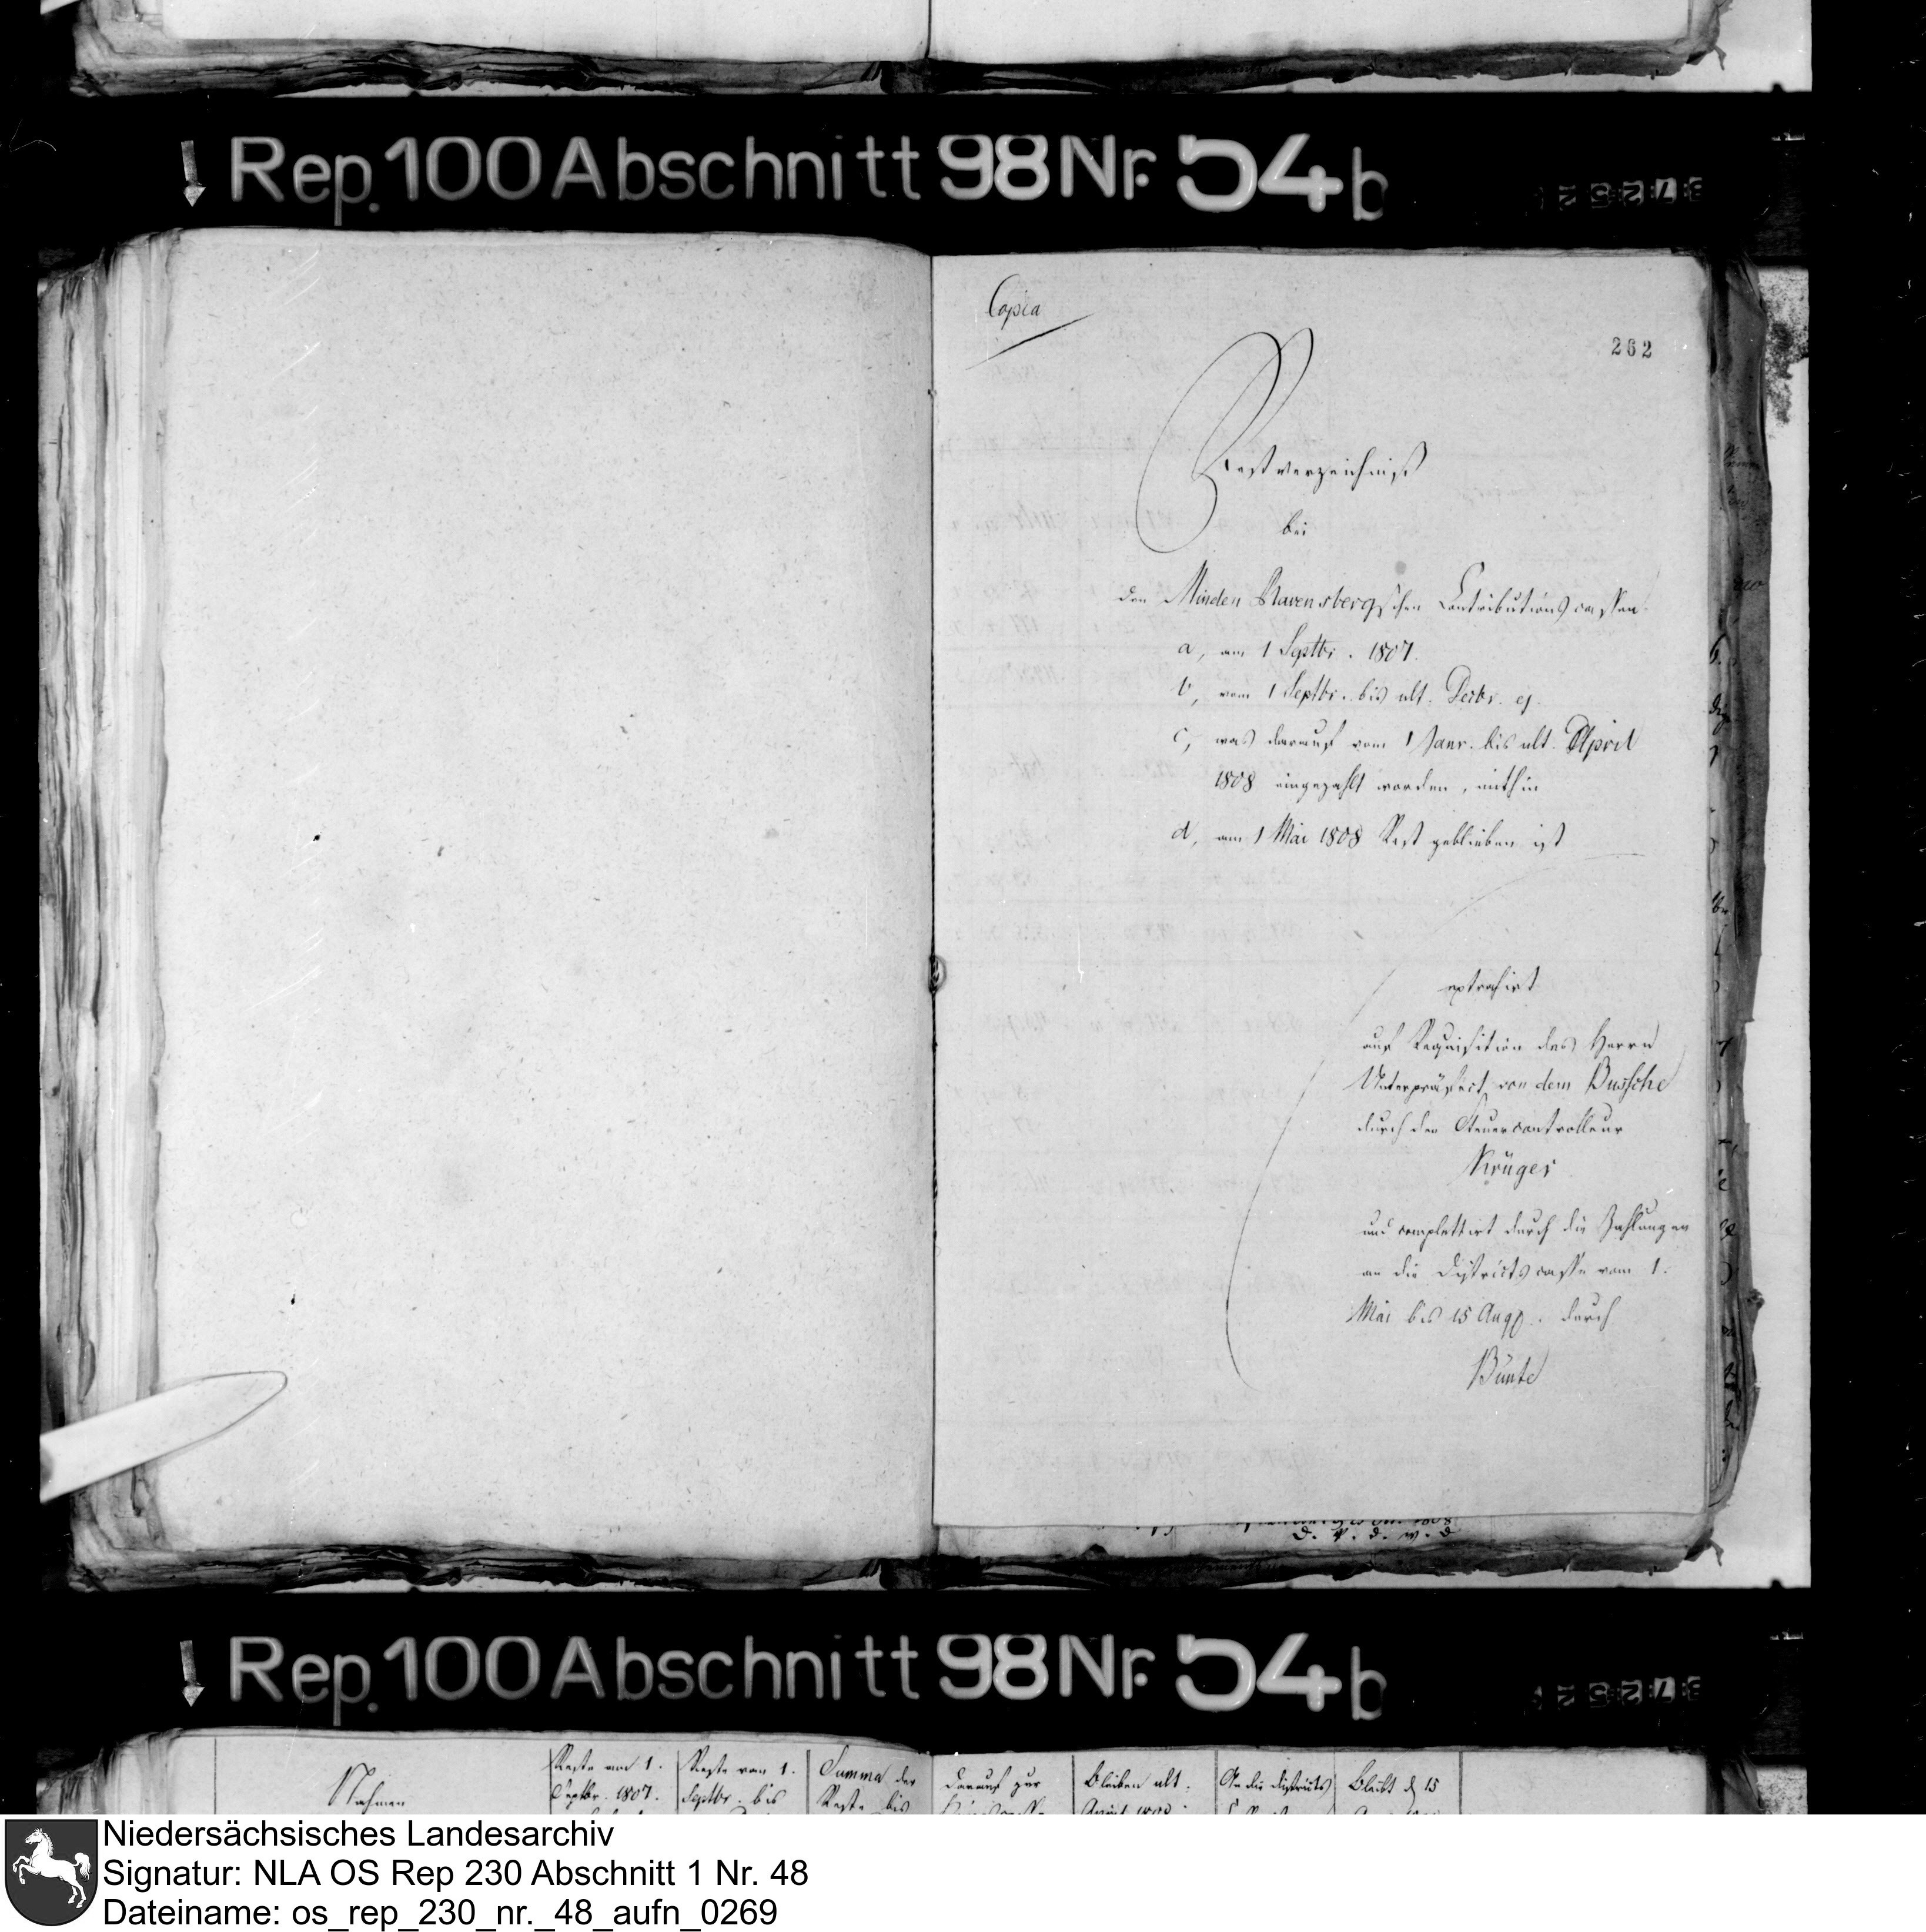 Rep. 100 Abschnitt 98 Nr. 54 b
Copia
262
Restverzeichniß
bei
den Minden Ravensbergschen Contributionscassen.
a, am 1 Septbr. 1807.
b, vom 1 Septbr. bis ult. Decbr. ej.
c, was darauf vom 1 Janr. bis ult. April
1808 eingezahlt worden, mithin
d, am 1 Mai 1808 Rest geblieben ist
extrahirt
auf Requisition des Herrn
Unterpräfect von dem Bussche
durch den Steuercontrolleur
Krüger
und complettirt durch die Zahlungen
an die Districtscasse vom 1.
Mai bis 15 Aug. durch
Bünte
Rep. 100 Abschnitt 98 Nr. 54 b
Nahmen
Reste am 1.
Septbr. 1807.
Reste vom 1.
Septbr. bis
Summa der
Reste bis
Darauf zur
Bleiben ult.
April 1808
An die Districts
Bleibt d 15
Niedersächsisches Landesarchiv
Signatur: NLA OS Rep 230 Abschnitt 1 Nr. 48
Dateiname: os_rep_230_nr._48_aufn_0269